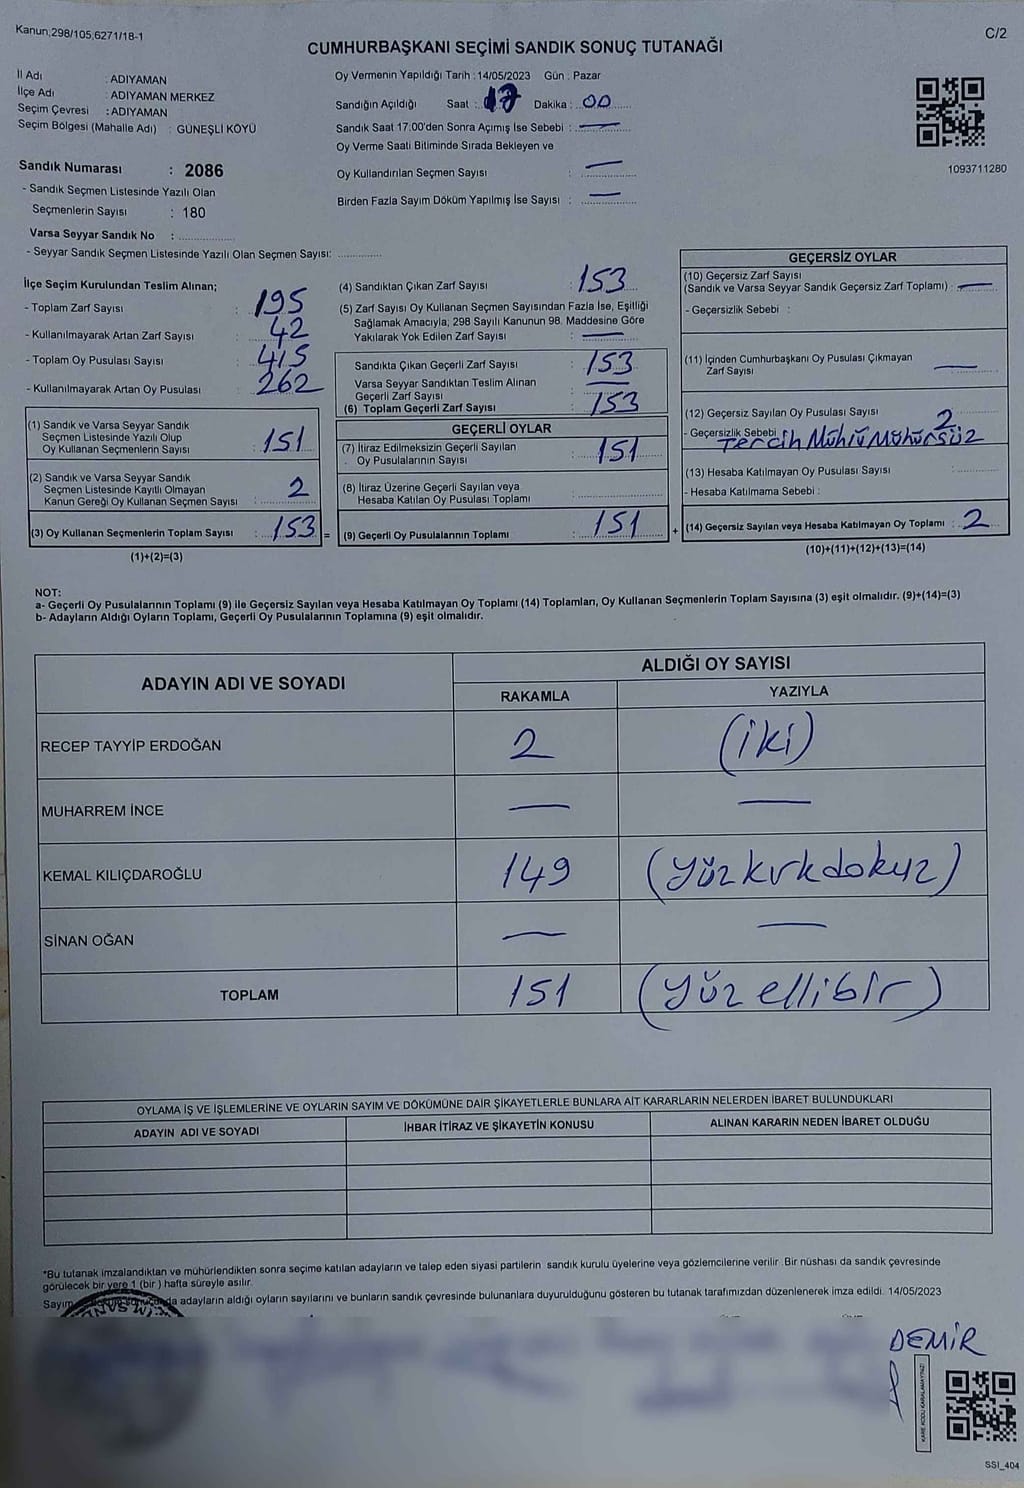 Kanun;298/105;6271/18-1
C/2
CUMHURBAŞKANI SEÇİMİ SANDIK SONUÇ TUTANAĞI
İl Adı : ADIYAMAN
İlçe Adı : ADIYAMAN MERKEZ
Seçim Çevresi : ADIYAMAN
Seçim Bölgesi (Mahalle Adı) : GÜNEŞLİ KÖYÜ
Sandık Numarası : 2086
- Sandık Seçmen Listesinde Yazılı Olan
Seçmenlerin Sayısı : 180
Varsa Seyyar Sandık No : ....................
- Seyyar Sandık Seçmen Listesinde Yazılı Olan Seçmen Sayısı: ..............
Oy Vermenin Yapıldığı Tarih : 14/05/2023 Gün : Pazar
Sandığın Açıldığı Saat : 17 Dakika : 00
Sandık Saat 17.00'den Sonra Açımış İse Sebebi : —
Oy Verme Saati Bitiminde Sırada Bekleyen ve
Oy Kullandırılan Seçmen Sayısı : —
Birden Fazla Sayım Döküm Yapılmış İse Sayısı : —
1093711280
İlçe Seçim Kurulundan Teslim Alınan;
- Toplam Zarf Sayısı : 195
- Kullanılmayarak Artan Zarf Sayısı : 42
- Toplam Oy Pusulası Sayısı : 415
- Kullanılmayarak Artan Oy Pusulası : 262
(1) Sandık ve Varsa Seyyar Sandık
Seçmen Listesinde Yazılı Olup
Oy Kullanan Seçmenlerin Sayısı : 151
(2) Sandık ve Varsa Seyyar Sandık
Seçmen Listesinde Kayıtlı Olmayan
Kanun Gereği Oy Kullanan Seçmen Sayısı : 2
(3) Oy Kullanan Seçmenlerin Toplam Sayısı : 153 =
(1)+(2)=(3)
(4) Sandıktan Çıkan Zarf Sayısı : 153
(5) Zarf Sayısı Oy Kullanan Seçmen Sayısından Fazla İse, Eşitliği
Sağlamak Amacıyla; 298 Sayılı Kanunun 98. Maddesine Göre
Yakılarak Yok Edilen Zarf Sayısı : —
Sandıkta Çıkan Geçerli Zarf Sayısı : 153
Varsa Seyyar Sandıktan Teslim Alınan
Geçerli Zarf Sayısı : —
(6) Toplam Geçerli Zarf Sayısı : 153
GEÇERLİ OYLAR
(7) İtiraz Edilmeksizin Geçerli Sayılan
Oy Pusulalarının Sayısı : 151
(8) İtiraz Üzerine Geçerli Sayılan veya
Hesaba Katılan Oy Pusulası Toplamı : ....................
(9) Geçerli Oy Pusulalarının Toplamı : 151 +
GEÇERSİZ OYLAR
(10) Geçersiz Zarf Sayısı
(Sandık ve Varsa Seyyar Sandık Geçersiz Zarf Toplamı) : —
- Geçersizlik Sebebi :
(11) İçinden Cumhurbaşkanı Oy Pusulası Çıkmayan
Zarf Sayısı : —
(12) Geçersiz Sayılan Oy Pusulası Sayısı : 2
- Geçersizlik Sebebi : Tercih Mühlü Mühürsüz
(13) Hesaba Katılmayan Oy Pusulası Sayısı : ..........
- Hesaba Katılmama Sebebi :
(14) Geçersiz Sayılan veya Hesaba Katılmayan Oy Toplamı : 2
(10)+(11)+(12)+(13)=(14)
NOT:
a- Geçerli Oy Pusulalarının Toplamı (9) ile Geçersiz Sayılan veya Hesaba Katılmayan Oy Toplamı (14) Toplamları, Oy Kullanan Seçmenlerin Toplam Sayısına (3) eşit olmalıdır. (9)+(14)=(3)
b- Adayların Aldığı Oyların Toplamı, Geçerli Oy Pusulalarının Toplamına (9) eşit olmalıdır.
ADAYIN ADI VE SOYADI
ALDIĞI OY SAYISI
RAKAMLA YAZIYLA
RECEP TAYYİP ERDOĞAN 2 (iki)
MUHARREM İNCE — —
KEMAL KILIÇDAROĞLU 149 (Yüzkırkdokuz)
SİNAN OĞAN — —
TOPLAM 151 (Yüzellibir)
OYLAMA İŞ VE İŞLEMLERİNE VE OYLARIN SAYIM VE DÖKÜMÜNE DAİR ŞİKAYETLERLE BUNLARA AİT KARARLARIN NELERDEN İBARET BULUNDUKLARI
ADAYIN ADI VE SOYADI İHBAR İTİRAZ VE ŞİKAYETİN KONUSU ALINAN KARARIN NEDEN İBARET OLDUĞU
*Bu tutanak imzalandıktan ve mühürlendikten sonra seçime katılan adayların ve talep eden siyasi partilerin sandık kurulu üyelerine veya gözlemcilerine verilir. Bir nüshası da sandık çevresinde
görülecek bir yere 1 (bir ) hafta süreyle asılır.
Sayım adayların aldığı oyların sayılarını ve bunların sandık çevresinde bulunanlara duyurulduğunu gösteren bu tutanak tarafımızdan düzenlenerek imza edildi. 14/05/2023
DEMİR
KARE KODU KARALAMAYINIZ!
SSI_404